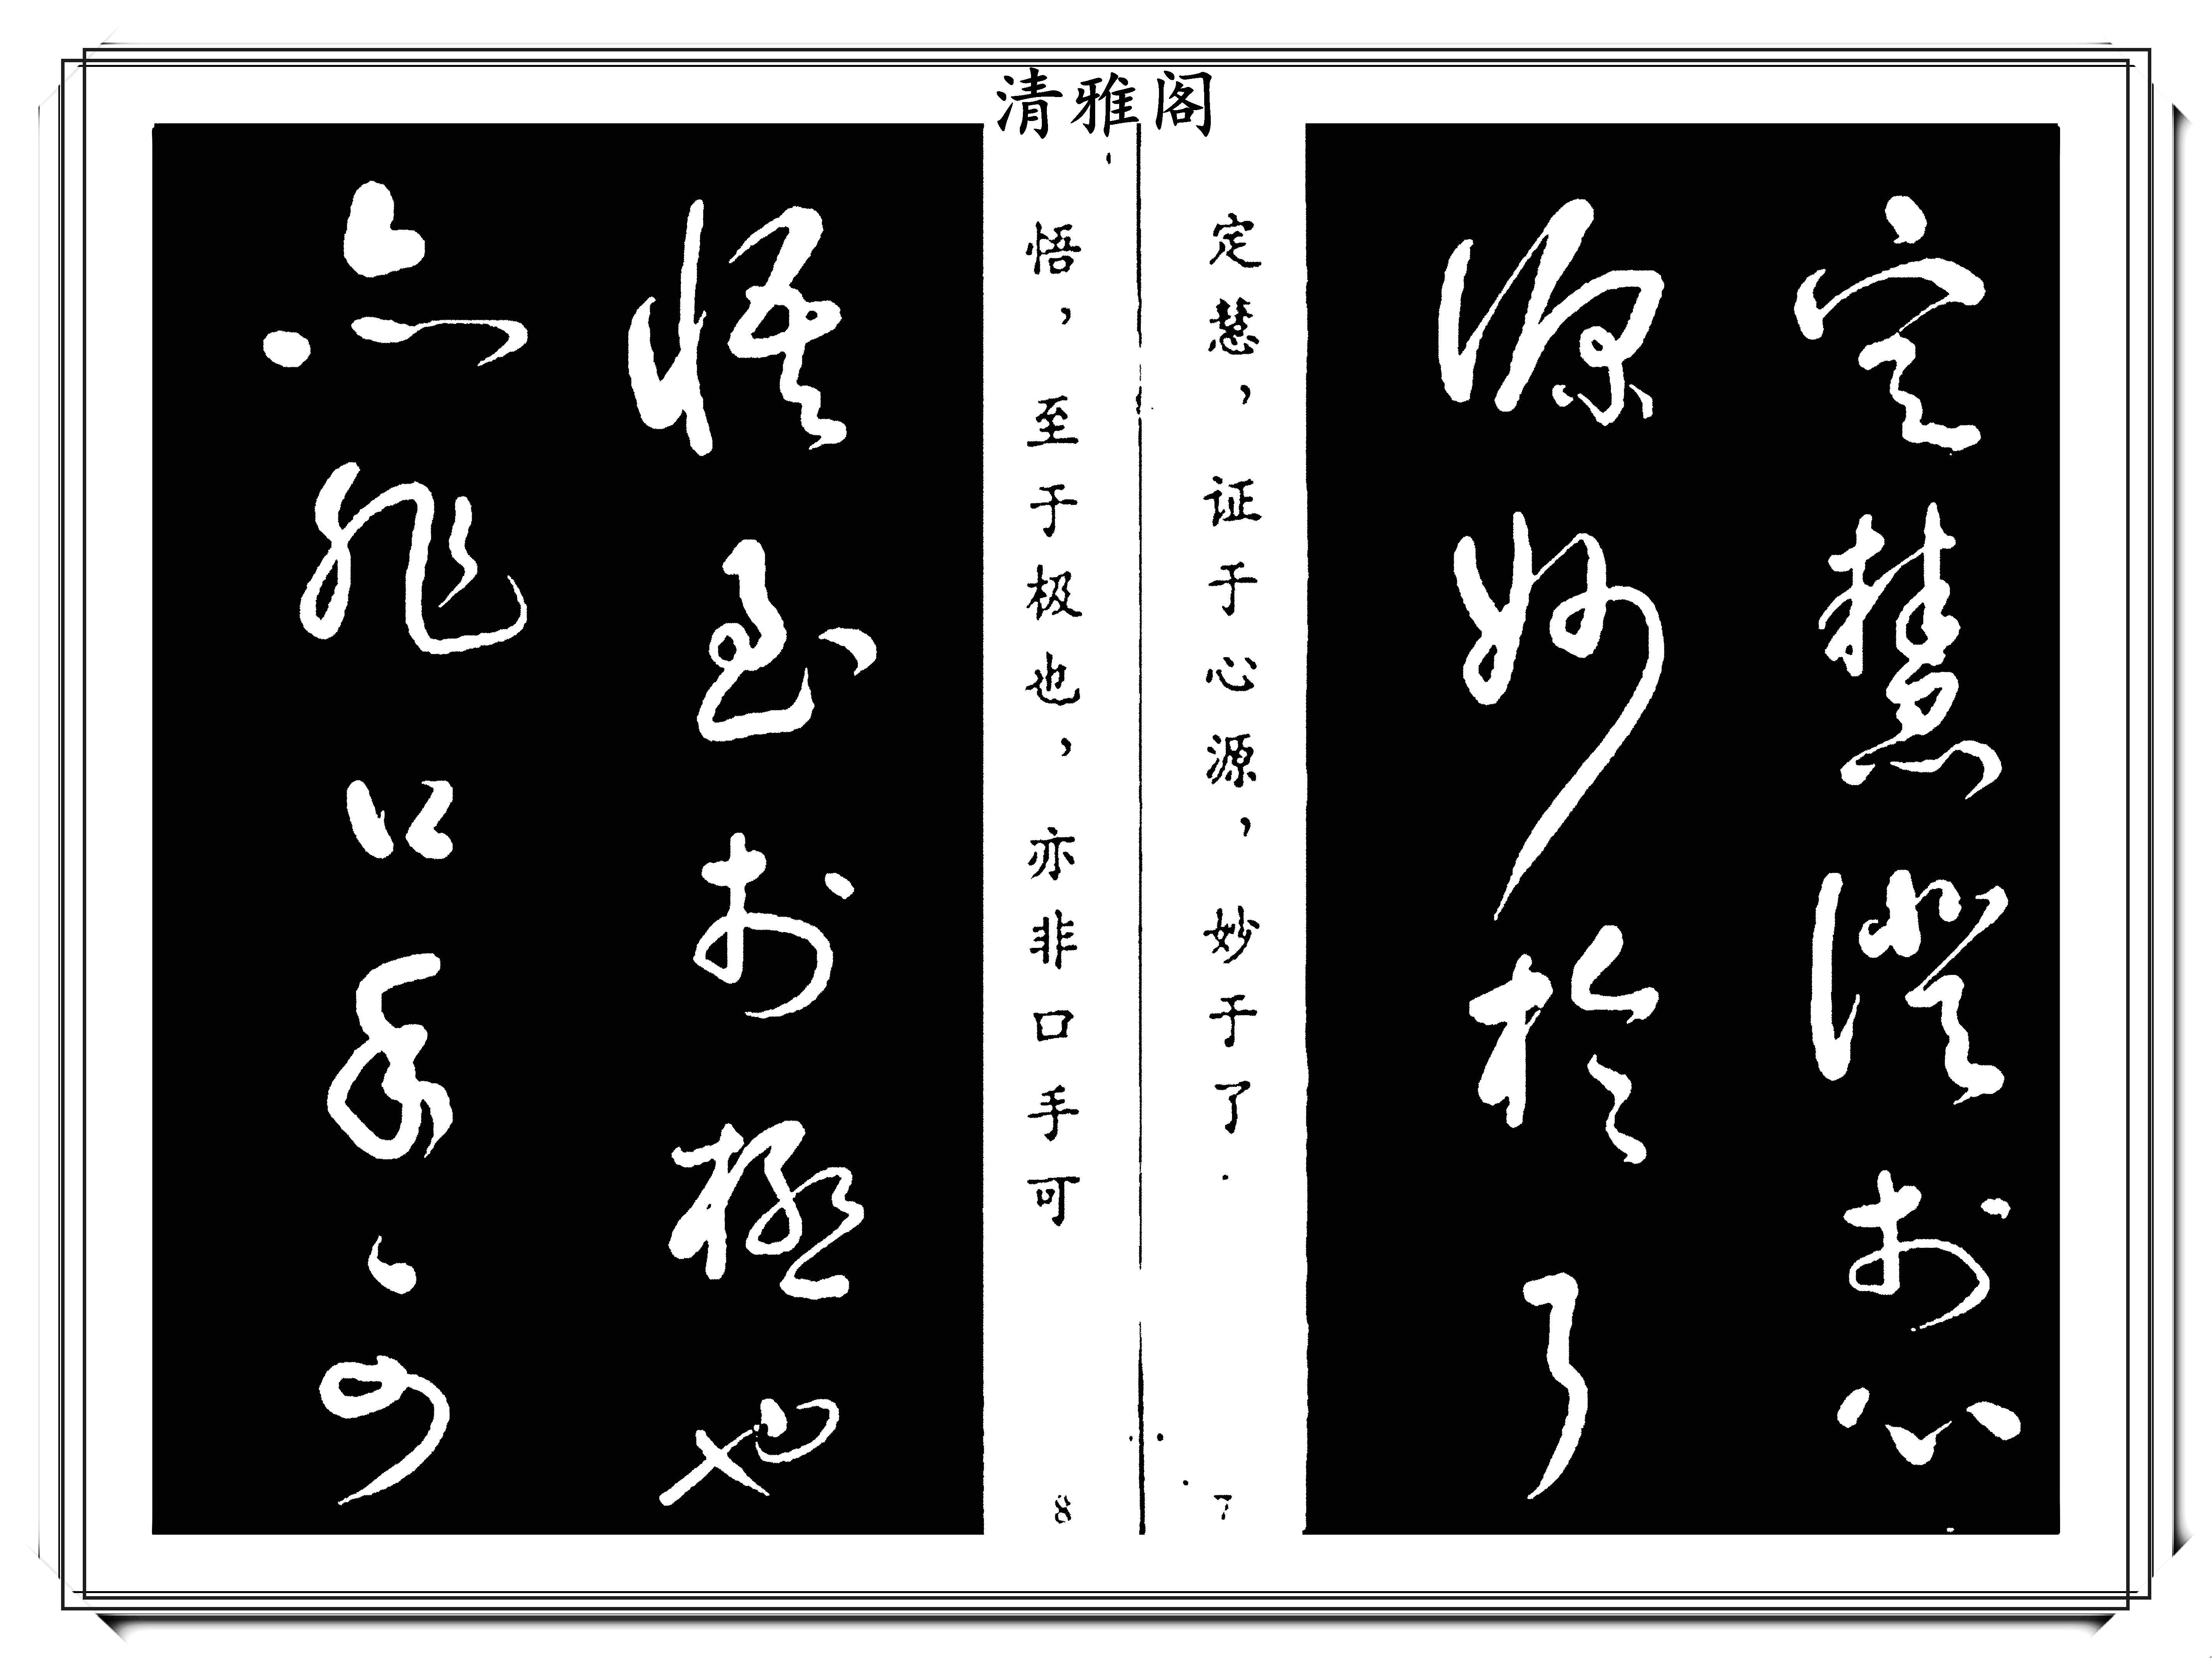 清雅阁
定慧證於心
源妙於了
定慧，证于心源，妙于了
7
悟，至于极也，亦非口手可
8
悟至於極也
亦非口手可